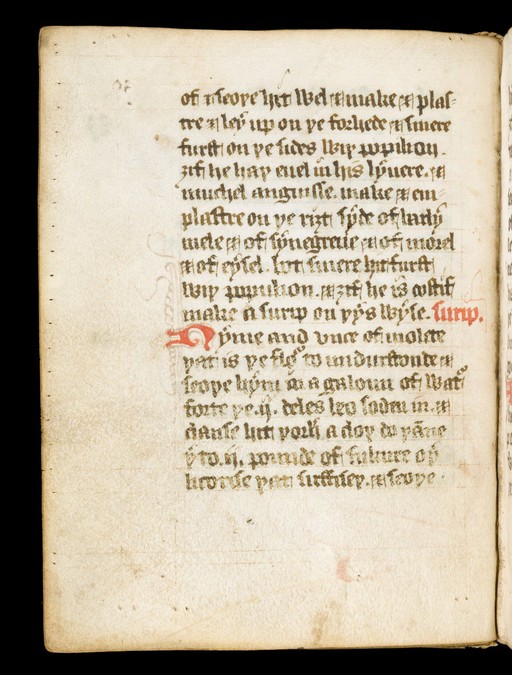 of ⁊ seoye hit wel ⁊ make ⁊ plas-
tre ⁊ ley up on ye forhede ⁊ smere
furst on ye sides wiy popilion.
ȝif he hay euel in his lyuere. ⁊
muchel anguisse. make ⁊ em-
plastre on ye riȝt syde of barly
mele ⁊ of fynegreue ⁊ of morel
⁊ of eysel. bot smere hit furst
wiy popilion. ⁊ ȝif he is costif
make a surip on yys wyse. surip.
Nyme and vnce of violete
yat is ye flo to undurstonde ⁊
seoye hym in a galoun of wat
forte ye .ij. deles beo soden in. ⁊
clanse hit yorh a cloy do yanne
yto .ij. pounde of sukure oy
licorise yat suffisey. ⁊ seoye